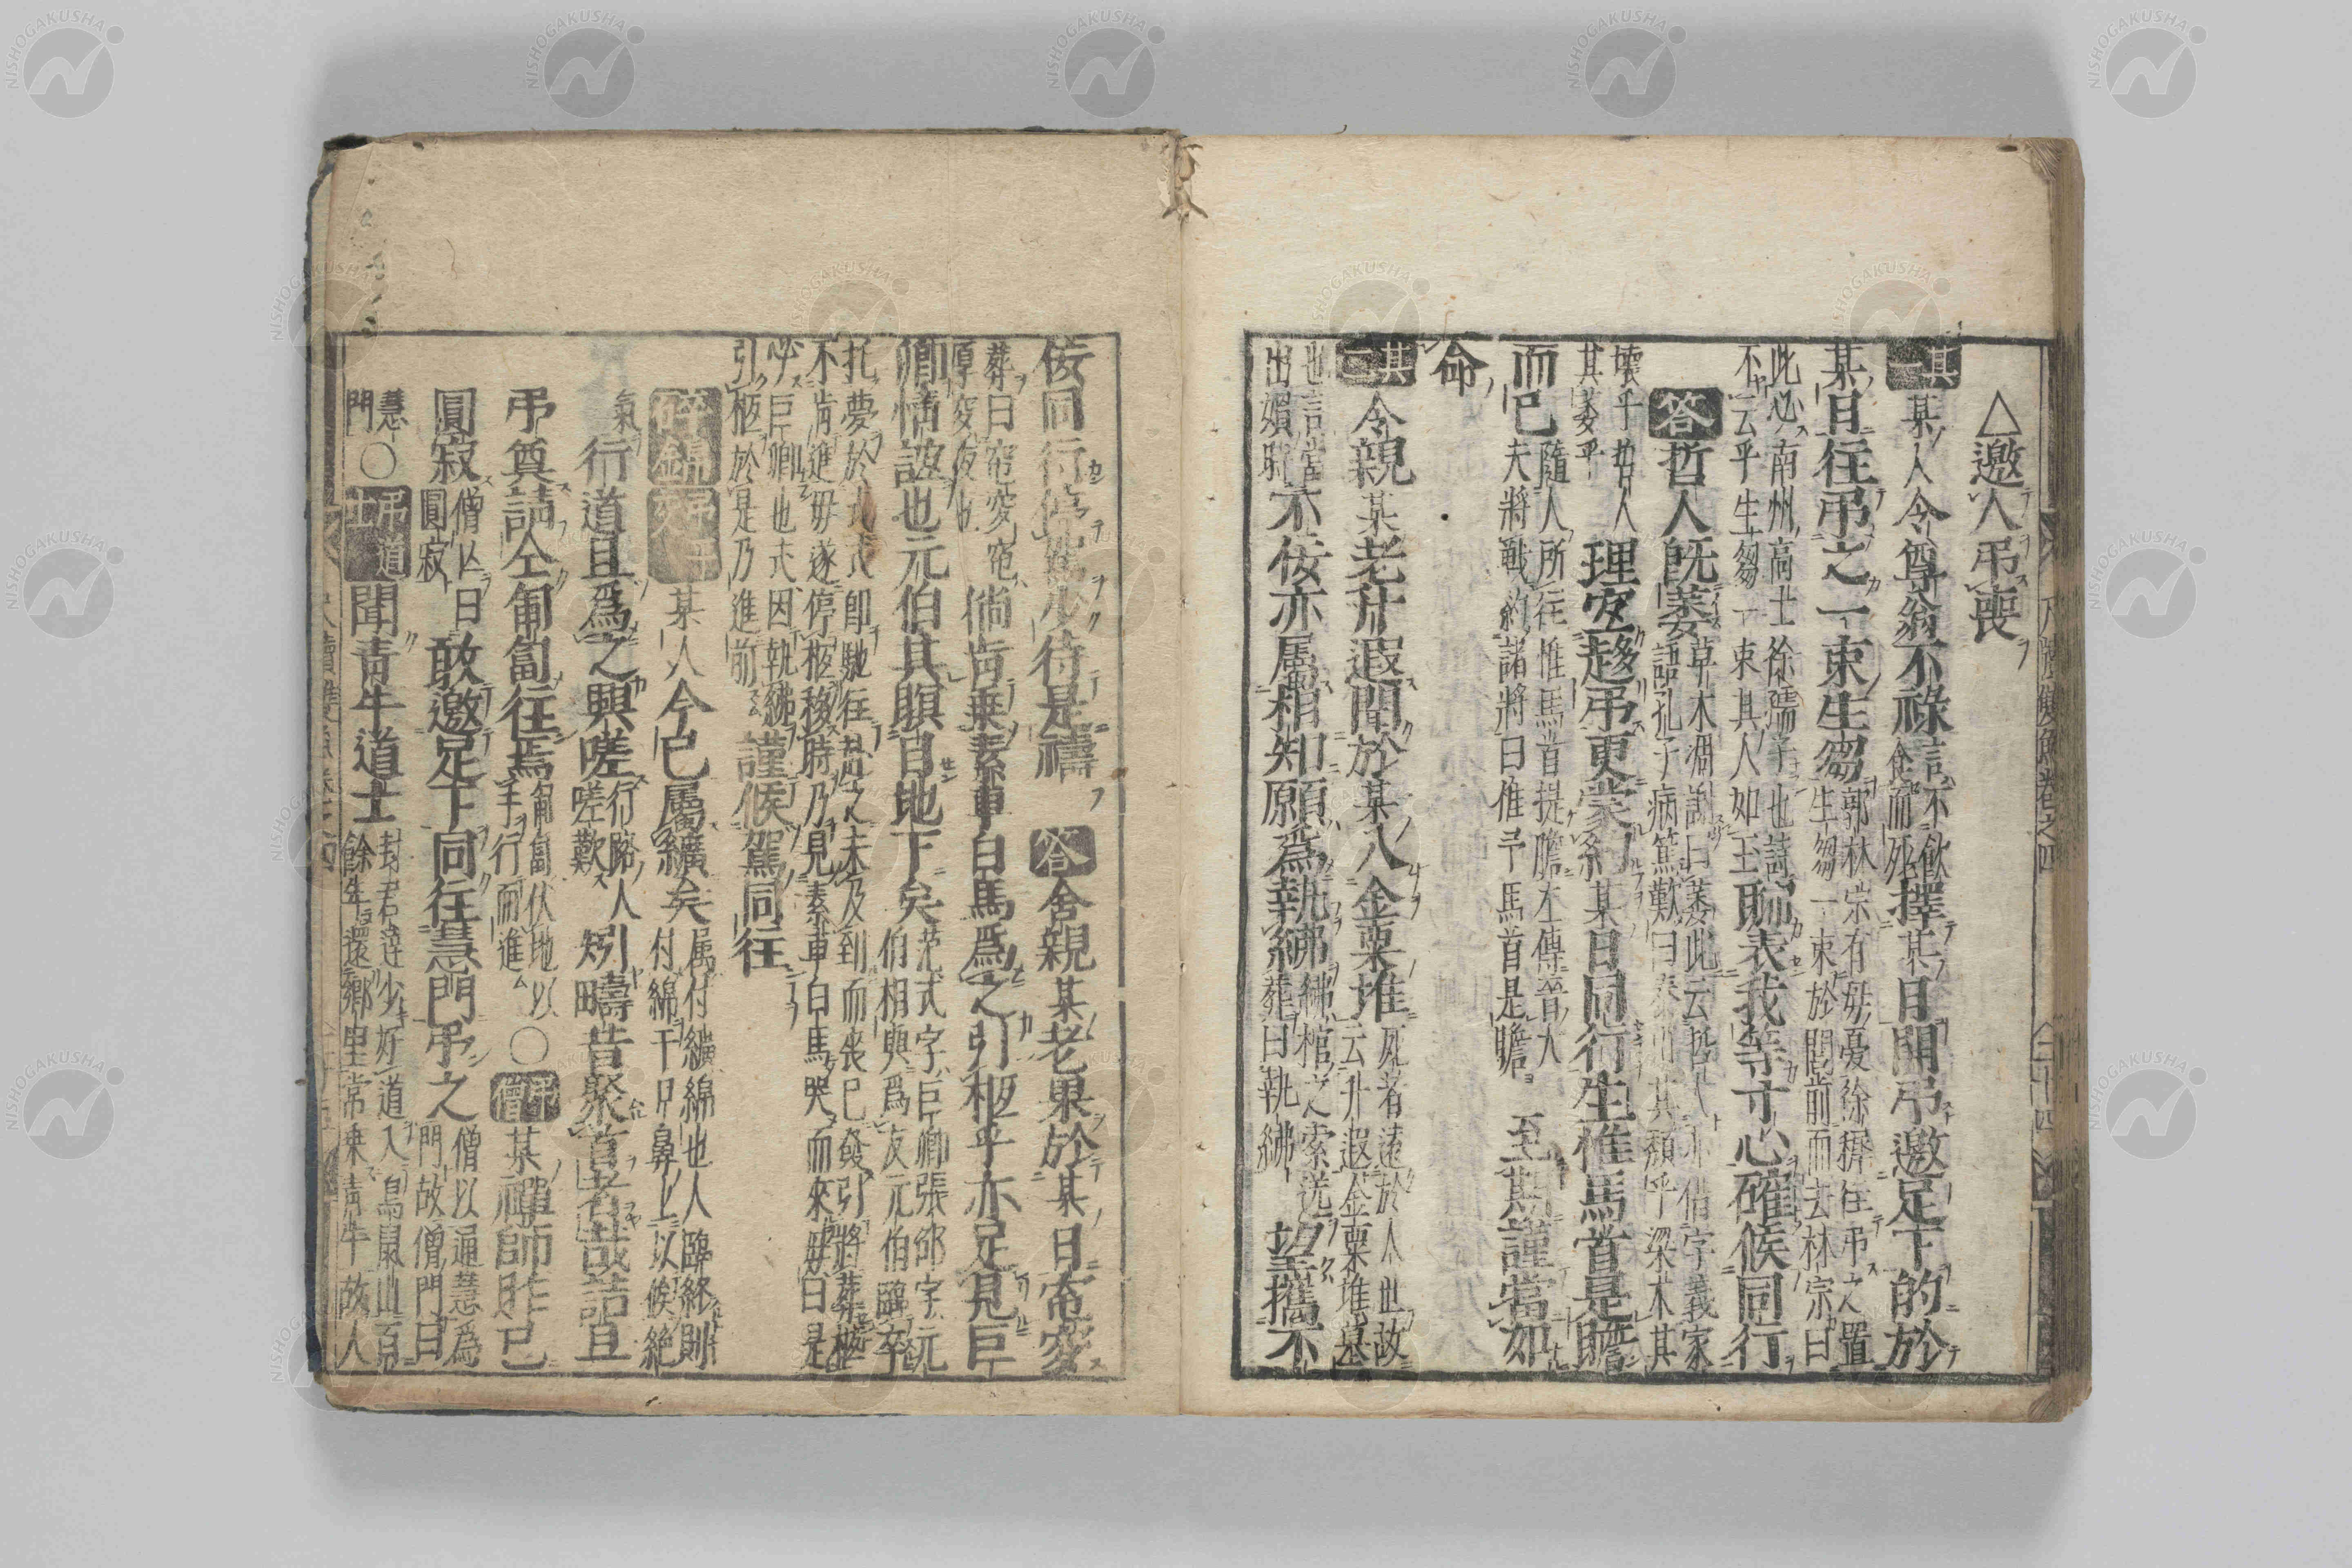 △邀人弔喪
其一 某人令尊翁不祿 言不飲食而死 擇某日開弔邀足下的於
某日往弔之一束生芻 郭林宗有母憂徐穉往弔之置生芻一束於閭前而去林宗曰
此必南州高士徐孺子也詩不云乎生芻一束其人如玉 聊表我等寸心確候同行
答 哲人既萎 草木凋謝曰萎此云哲人亦借字義家語孔子病篤歎曰泰山其頹乎梁木其
壞乎哲人其萎乎 理宜趨弔更蒙約某日同行生惟馬首是瞻
而已 隨人所往惟馬首提瞻左傳晉大夫將戰約諸將曰惟予馬首是瞻 至期謹當如
命
其二 令親某老升遐聞於某八金粟堆 死者遠於人世故云升遐金粟堆墓
也言當出殯時 不佞亦属相知願爲執紼 紼棺之索送葬曰執紼 望攜不
尺牘雙魚卷之四 二十四
佞同行停驂少待是禱 答 舍親某老果於某日窀穸
葬曰窀穸窀厚穸夜也 倘肯乘素車白馬爲之引柩乎亦足見巨
卿情誼也元伯其瞑目地下矣 范式字巨卿張邵字元伯相與爲友元伯臨卒
托夢於式式即馳往赴之未及到而喪已發引將葬柩不肯進母遂停柩移時乃見素車白馬哭而來母曰是
必巨卿也式因執紼引柩於是乃進前 謹候駕同往
碎錦 某人今已屬纊矣 属付付纊綿也人臨終則付綿于口鼻上以候絶
氣 行道且爲之興嗟 行路人嗟歎 矧疇昔聚首者哉詰旦
弔奠請仝匍匐往焉 匍匐伏地以手行而進 ○ 弔僧 某禪師昨已
圓寂 僧亡曰圓寂 敢邀足下同往慧門弔之 僧以通慧爲門故僧門曰
慧門 ○ 弔道士 聞青牛道士 封君達少好道入鳥鼠山百餘年還鄉里常乘青牛故人